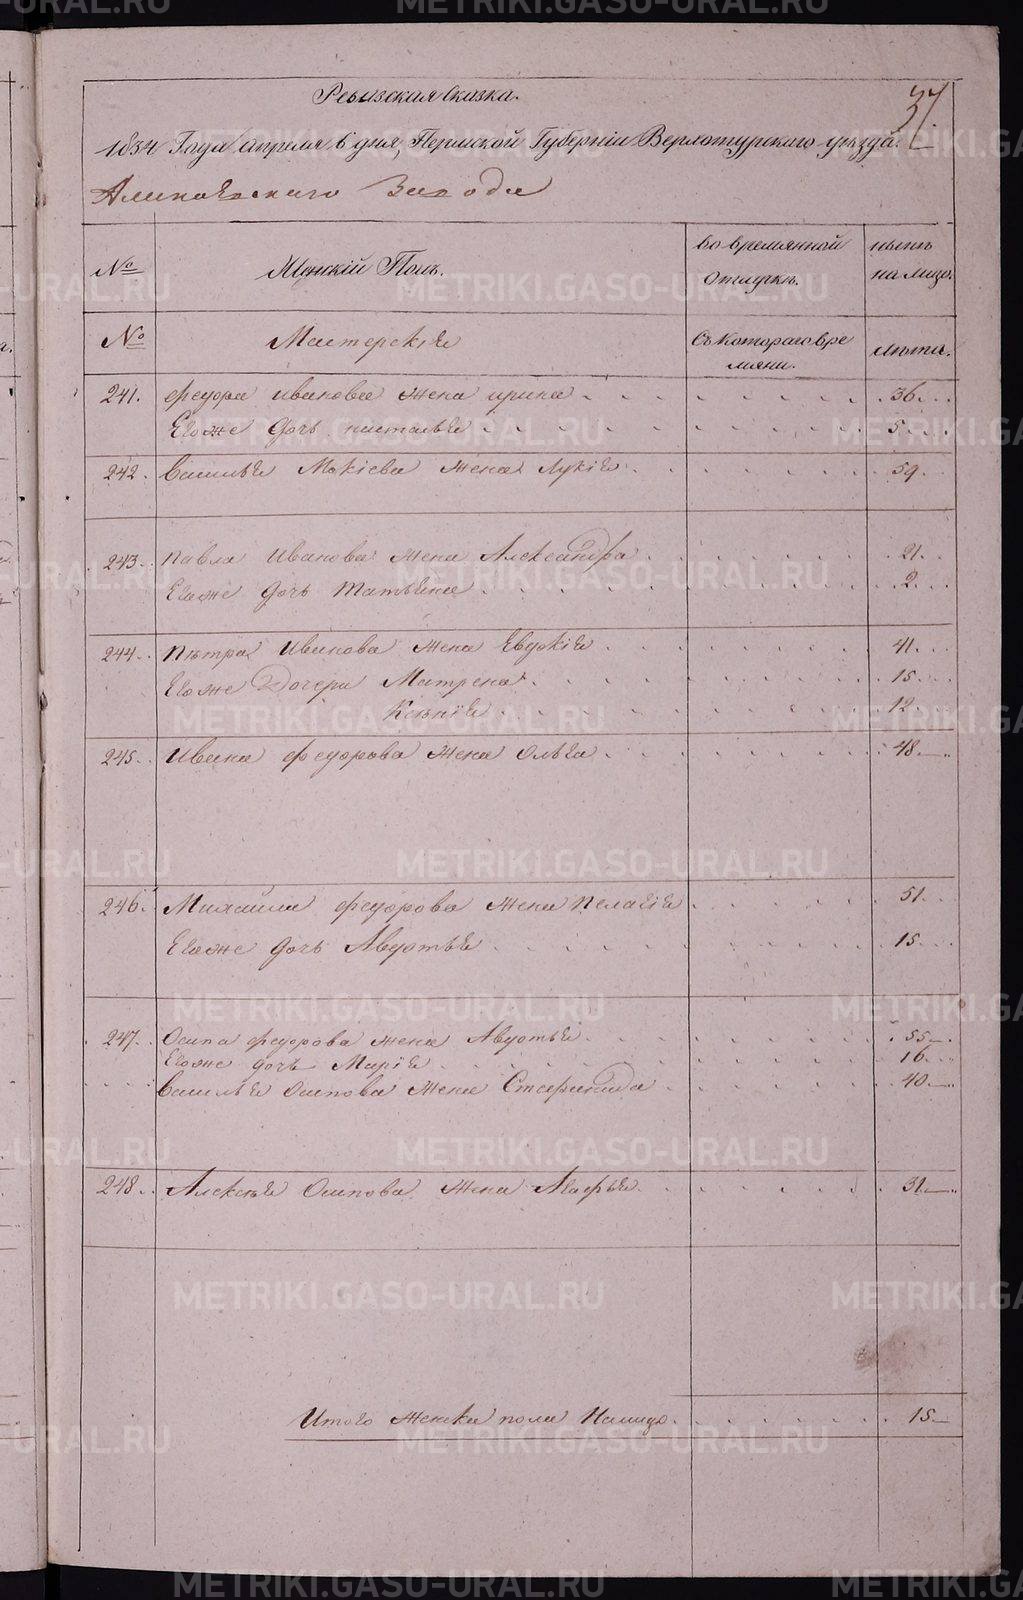 37.
Ревизская Сказка.
1834 Года Апреля 6 дня, Пермской Губернiи Верхотурского уѣзда.
Завода
№
Женскiй Полъ.
во временной
отлучкѣ.
нынѣ
на лицо.
№
Мастерскiе
Съ Котораго вре
мяни.
лѣта.
241. федора иванова жена ирина 36.
Егоже дочь наталья 5
242. Василья Мокiева жена Лукiя 59.
243. павла Иванова жена Александра 21.
Егоже дочь татьяна 2.
244. Пѣтра Иванова жена Евдокiя 41.
Егоже Дочери Матрена 15.
Ксѣнiя 12.
245. Ивана федорова жена ольга 48.
246. Михаила федорова жена пелагiя 51.
Егоже дочь Авдотья 15.
247. Осипа федорова жена Авдотья 55.
Егоже дочь Марiя 16.
Василья Осипова жена Степанида 40.
248. Алексѣя Осипова жена Агафья 31.
Итого женска пола Налицо 15
METRIKI.GASO-URAL.RU